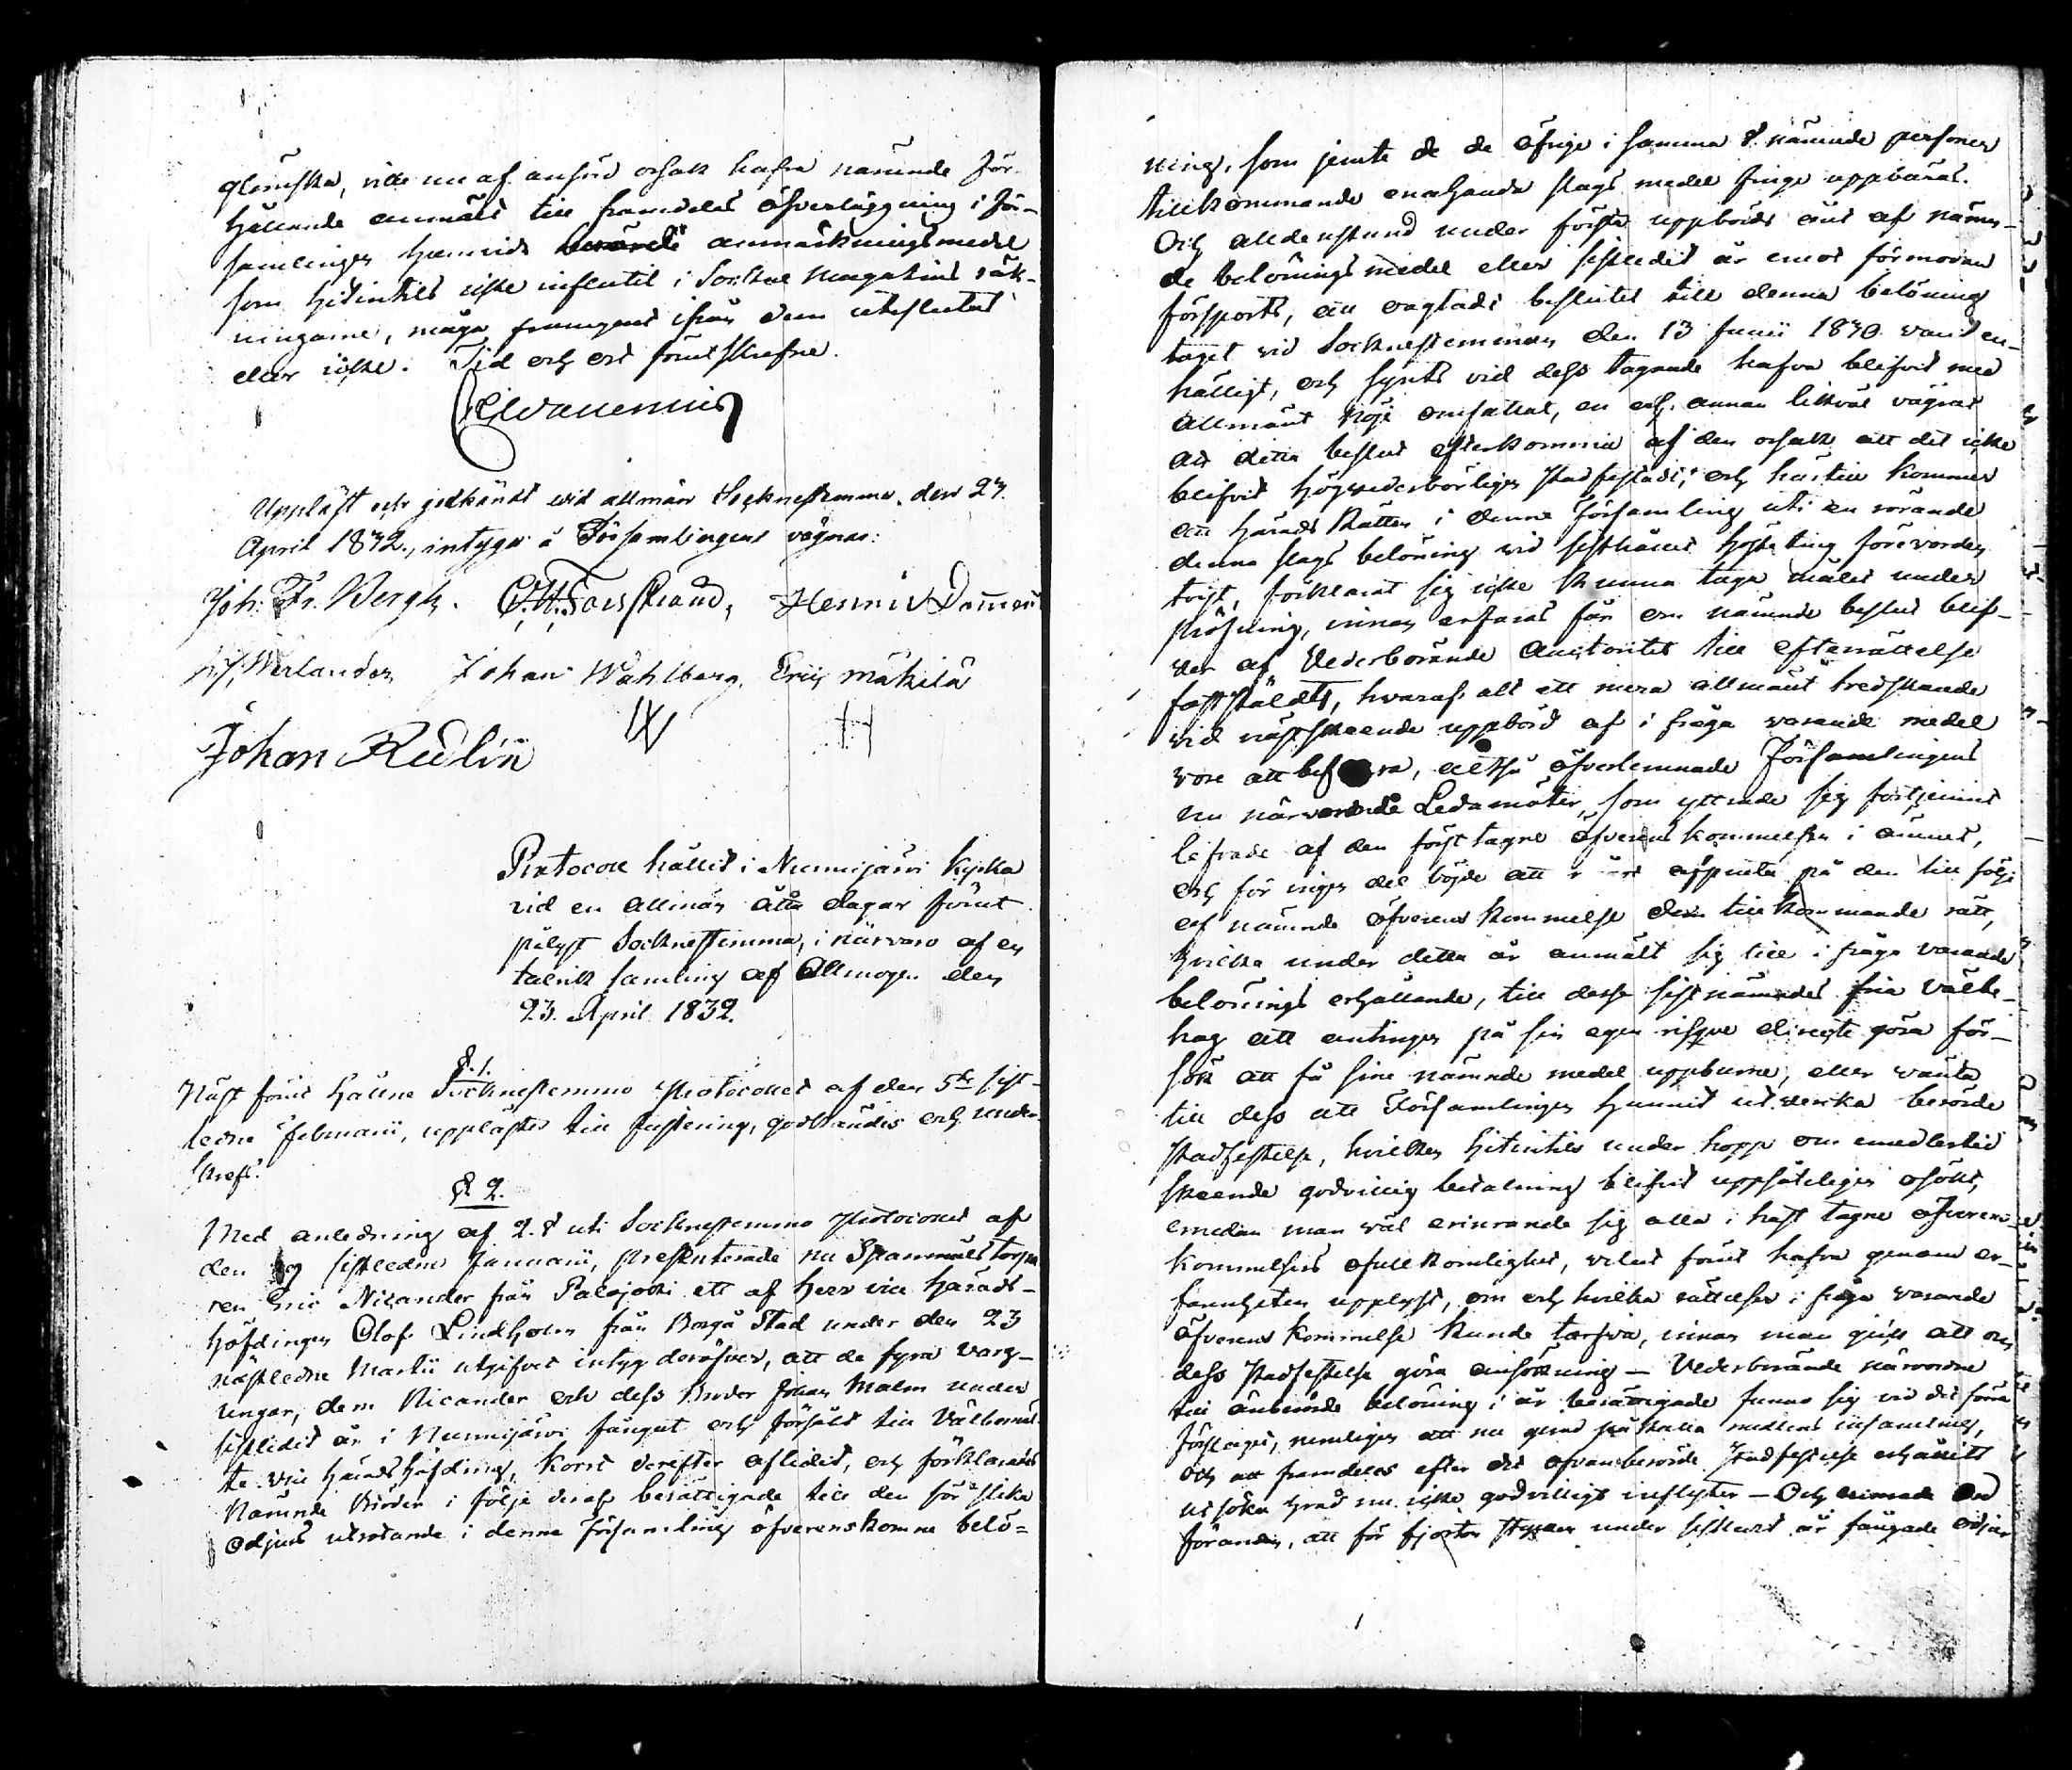 glömska, ville nu af anförd orsak hafva nämnde för-
hållande anmält till framdeles öfverläggning i För-
samlingen huruvida anmärkningsmedel
som hitintills icke influtit i Sockne Magasins räk-
ningarne, måga framgent ifrån dem uteslutas
eller icke. Tid och ort förutskrefne.
Uppläst och godkändt wid allmän Socknestemma, den 23.
April 1832., intyga å Församlingens vägnar:
Joh: Fr. Bergh. C. H. Forsstrand, Henric
Werlander Johan Wahlberg, Eric Mäkilä
Johan Redlin
Protocoll hållet i Nummijärvi kyrka
vid en allmän åtta dagar förut
pålyst Socknestemma, i närvaro af en
talrik samling af Allmogen den
23. April 1832.
§. 1.
Näst förut hållne Socknestemmo Protocollet af den 5te sist-
ledne Februarii, upplästes till justering, godkändes och under-
skrefs.
§. 2.
Med anledning af 2. § uti Socknestemmo Protocollet af
den sistledne Januarii, presenterade nu Spannmåls torpa-
ren Eric Nicander från Palojoki ett af Herr vice Härads-
höfdingen Olof Lindholm från Borgå Stad under den 23
nästledne Martii utgifvet intyg deröfver, att de fyra varg-
ungar, dem Nicander och dess Broder Johan Malm under
sistlidet år i Nummijärvi fångat och försålt till Välbemäl-
te vice Häradshöfding, kort derefter aflidit, och förklarades
Nämnde Bröder i följe deraf berättigade till den för slika
odjurs utrotande i denna Församling öfverenskomne belö-
ning, som jemte de de öfrige i samma § nämnde personer
tillkommande enahanda slags medel finge uppbäras.
Och alldenstund under första uppbörds året af nämn-
de belönings medel eller sistledit år emot förmodan
försports, att oagtadt beslutet till denna belöning
taget vid Socknestemman den 13 Junii 1830 varit en-
hälligt, och synts vid dess tagande hafva blifvit med
allmänt nöje omfattat, en och annan likväl vägrat
att detta beslut efterkomma af den orsak att det icke
blifvit högvederbörligen stadfästadt; och härtill kommer
att Härads Rätten i denne Församling uti en rörande
denna slags belöning vid sisthållet höste ting förevorden
tvist, förklarat sig icke kunna taga målet under
pröfning, innan erfarit får om nämnde beslut blif-
ver af Vederbörande Auctoritet till efterrättelse
fastställdt, hvaraf alt ett mera allmänt tredskande
vid nästskeende uppbörd af i fråga varande medel
vore att befara, alltså öfverlemnade Församlingens
nu närvarande Ledamöter, som yttrade sig fortfarande
lifvade af den först tagne öfverenskommelsen i ämnet,
och för ingen del böjde att i år afpruta på den till följe
af nämnde öfverenskommelse dem tillkommande rätt,
hvilka under detta år anmält sig till i fråga varande
belönings erhållande, till desse sistnämndes fria välbe-
hag att antingen på sin egen risque directe göra för-
sök att få sine nämnde medel uppburne, eller vänta
till dess att Församlingen hunnit utverka berörde
stadfestelse, hvilken hitintils under hopp om emedlertid
skeende godvillig betalning blifvit uppsåteligen osökt,
emedan man väl erinrande sig alla i hast tagne öfverens-
kommelsers ofullkomlighet, velat förut hafva genom er-
farenheten upplyst, om och hvilka rättelser i fråga varande
öfverenskommelse kunde tarfva, innan man gick att om
dess stadfestelse göra ansökning — Vederbörande närvarne
till ånberörde belöning i år berättigade funno sig vid det förra
förslaget, nemligen att nu genast påkalla medlens insamling,
och att framdeles efter det ofvanberörde stadfestelse erhållits
utsöka hvad nu icke godvilligt inflyter — Och Ord
föranden, att för fjorton stycken under sistledit år fångade odjur